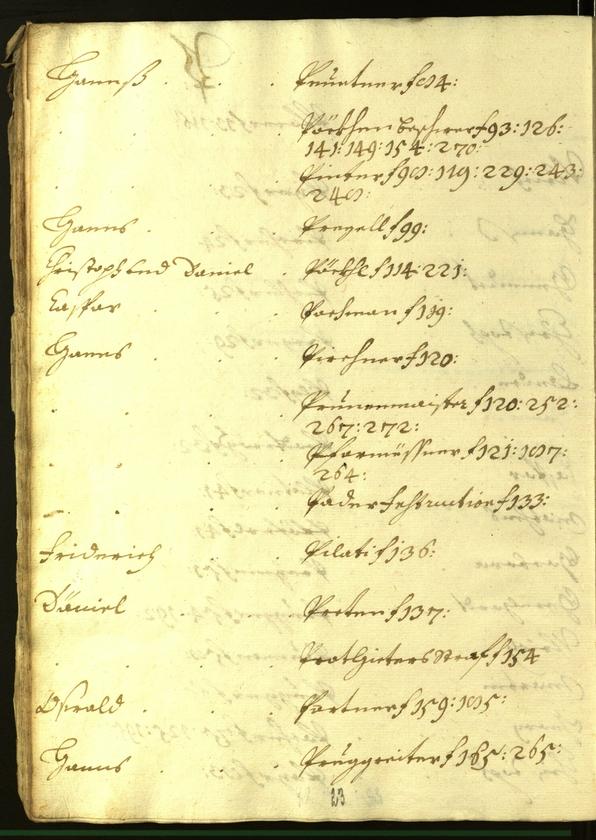 P
Hannß . . . Peuntner f 84:
. . . Pöckhen beschwer f 93: 126:
141: 149: 154: 270:
. . . Pinter f 98: 119: 229: 243:
248:
Hanns . . . Prexell f 99:
Christoph und Daniel . Pöckhl f 114: 221:
Caspar . . . Pachman f 119:
Hanns . . . Pirchner f 120:
. . . Prunenmaister f 120: 252:
267: 272:
. . . Pfarmössner f 121: 187:
264:
. . . Pader Instruction f 133:
Friderich . . . Pilati f 136:
Däniel . . . Preten f 137:
. . . Prothieters Straf f 154
Oswald . . . Partner f 159: 185:
Hanns . . . Pruggreiter f 185: 265:
23